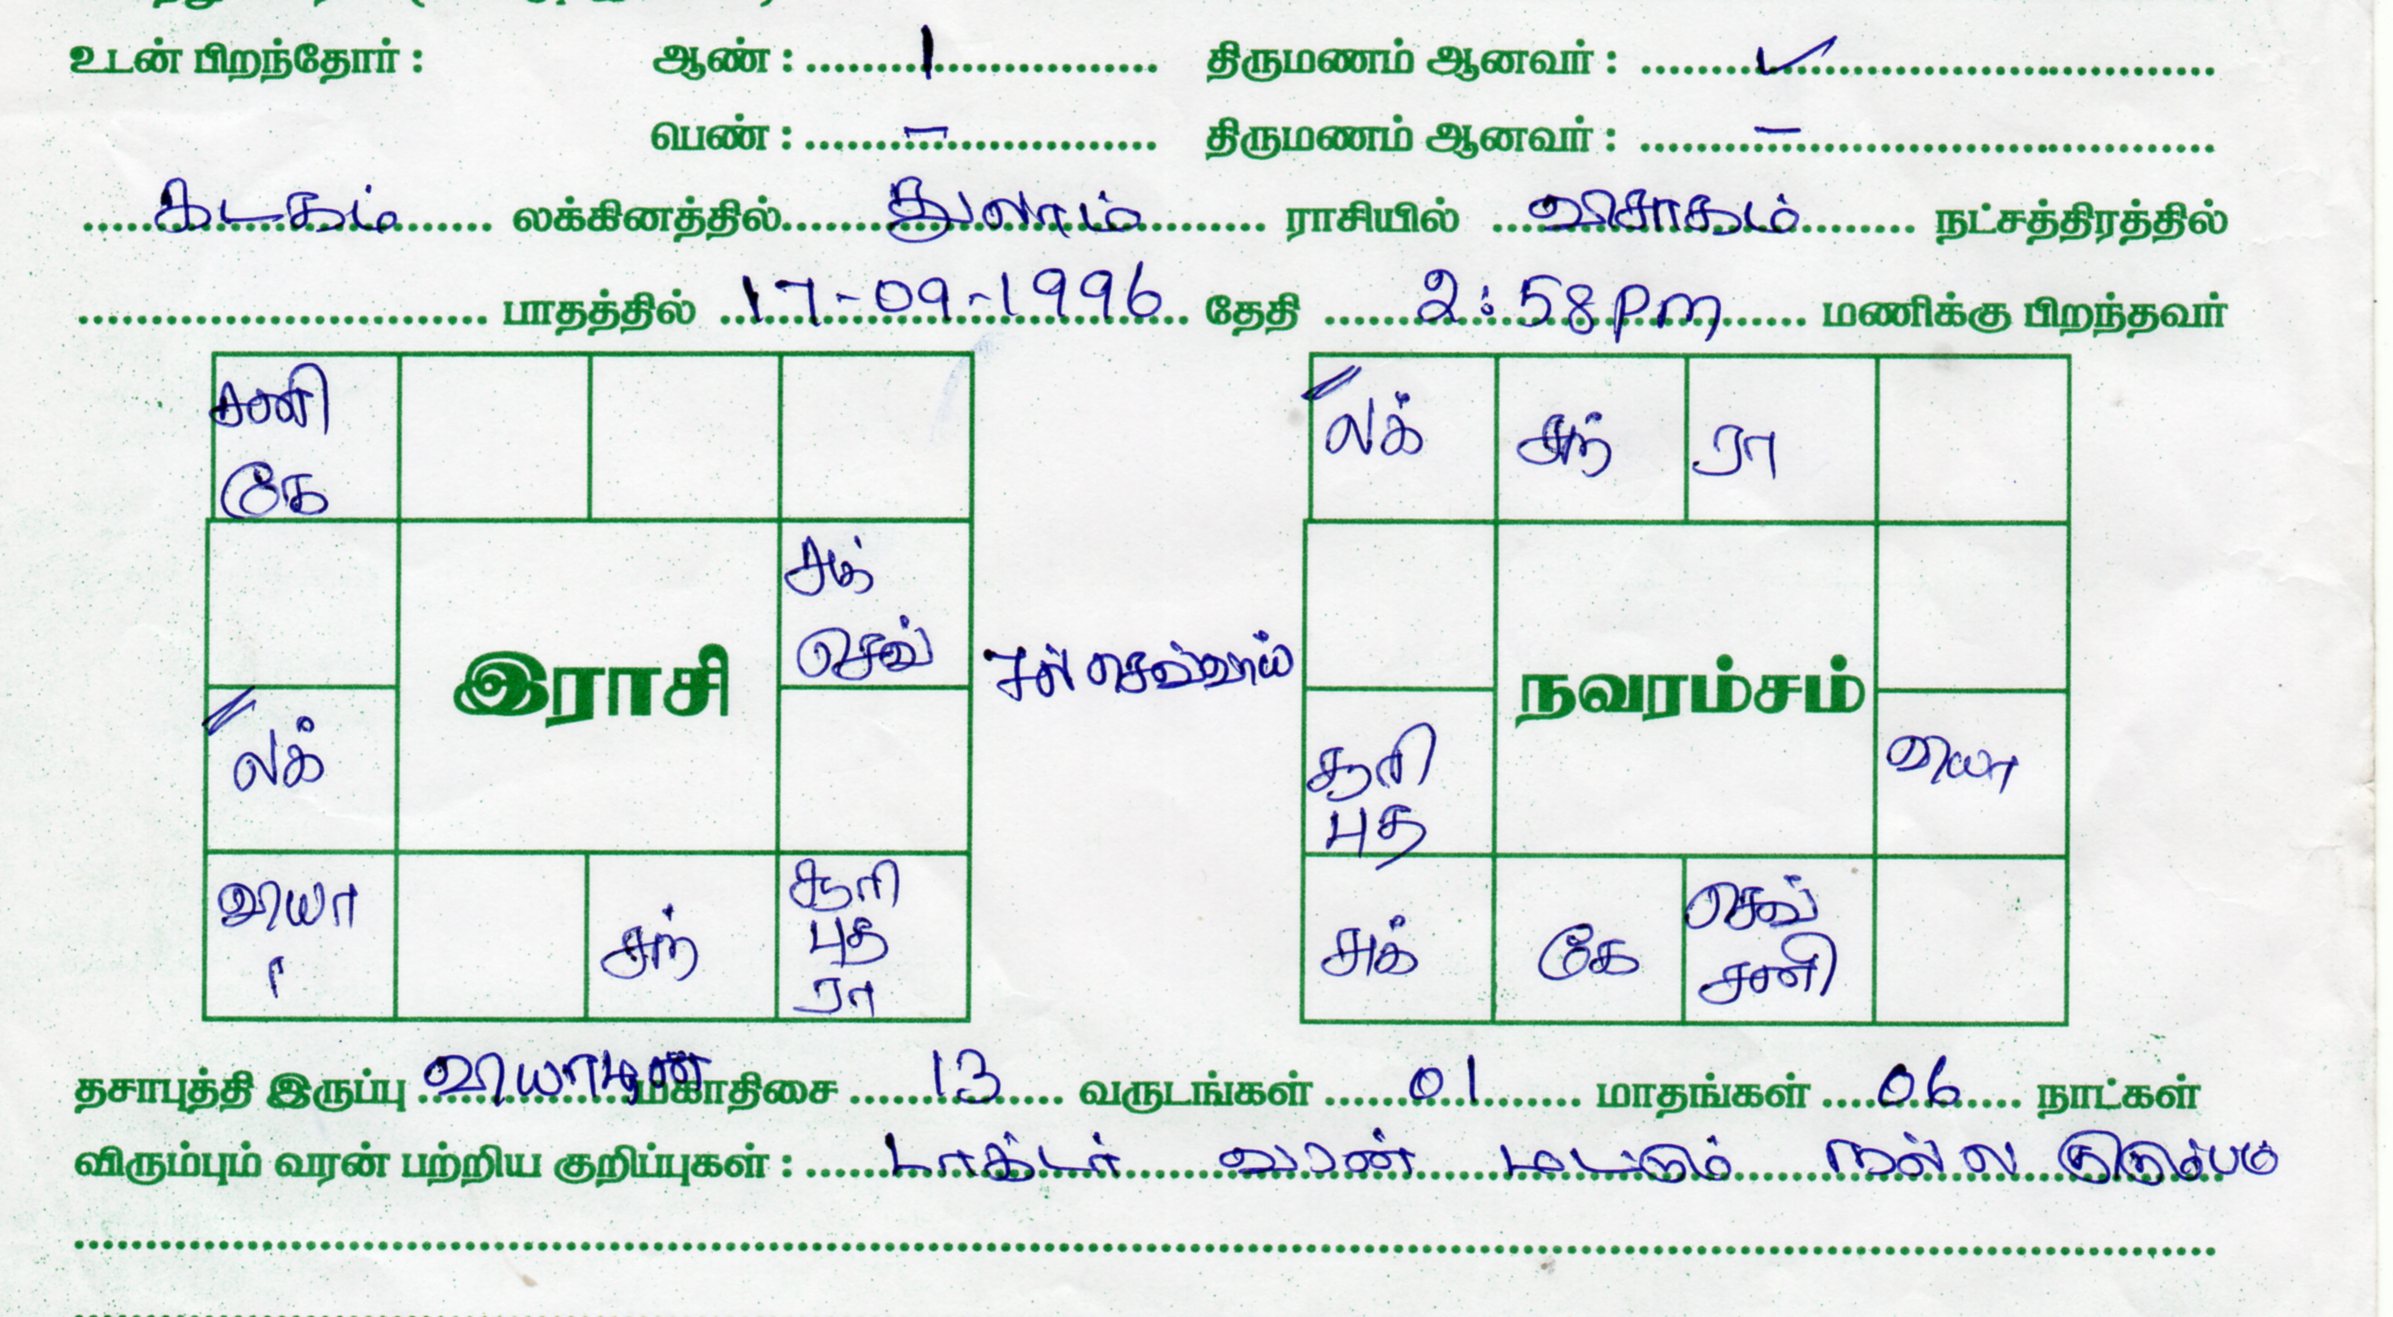 உடன் பிறந்தோர் : ஆண் : 1 திருமணம் ஆனவர் : ✓
பெண் : – திருமணம் ஆனவர் : –
கடகம் லக்கினத்தில் துலாம் ராசியில் விசாகம் நட்சத்திரத்தில்
பாதத்தில் 17-09-1996 தேதி 2:58 pm மணிக்கு பிறந்தவர்
சனி
கே
லக் சந் ரா
சுக்
செவ்
இராசி
சுத் செவ்வாய்
நவரம்சம்
லக்
சூரி
புத
வியா
வியா
சந்
சூரி
புத
ரா
சுக் கே
செவ்
சனி
தசாபுத்தி இருப்பு வியாழன் மகாதிசை 13 வருடங்கள் 01 மாதங்கள் 06 நாட்கள்
விரும்பும் வரன் பற்றிய குறிப்புகள் : டாக்டர் வரன் மட்டும் நல்ல குடும்பம்